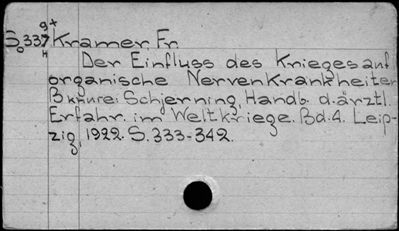 9+
So337 Kramer, Fr.
H
Der Einfluss des Krieges auf
organische Nervenkrankheiten
Schjerning, Handb. d. ärztl.
Erfahr. im Weltkriege. Bd. 4. Leip-
zig, 1922. S. 333-342.